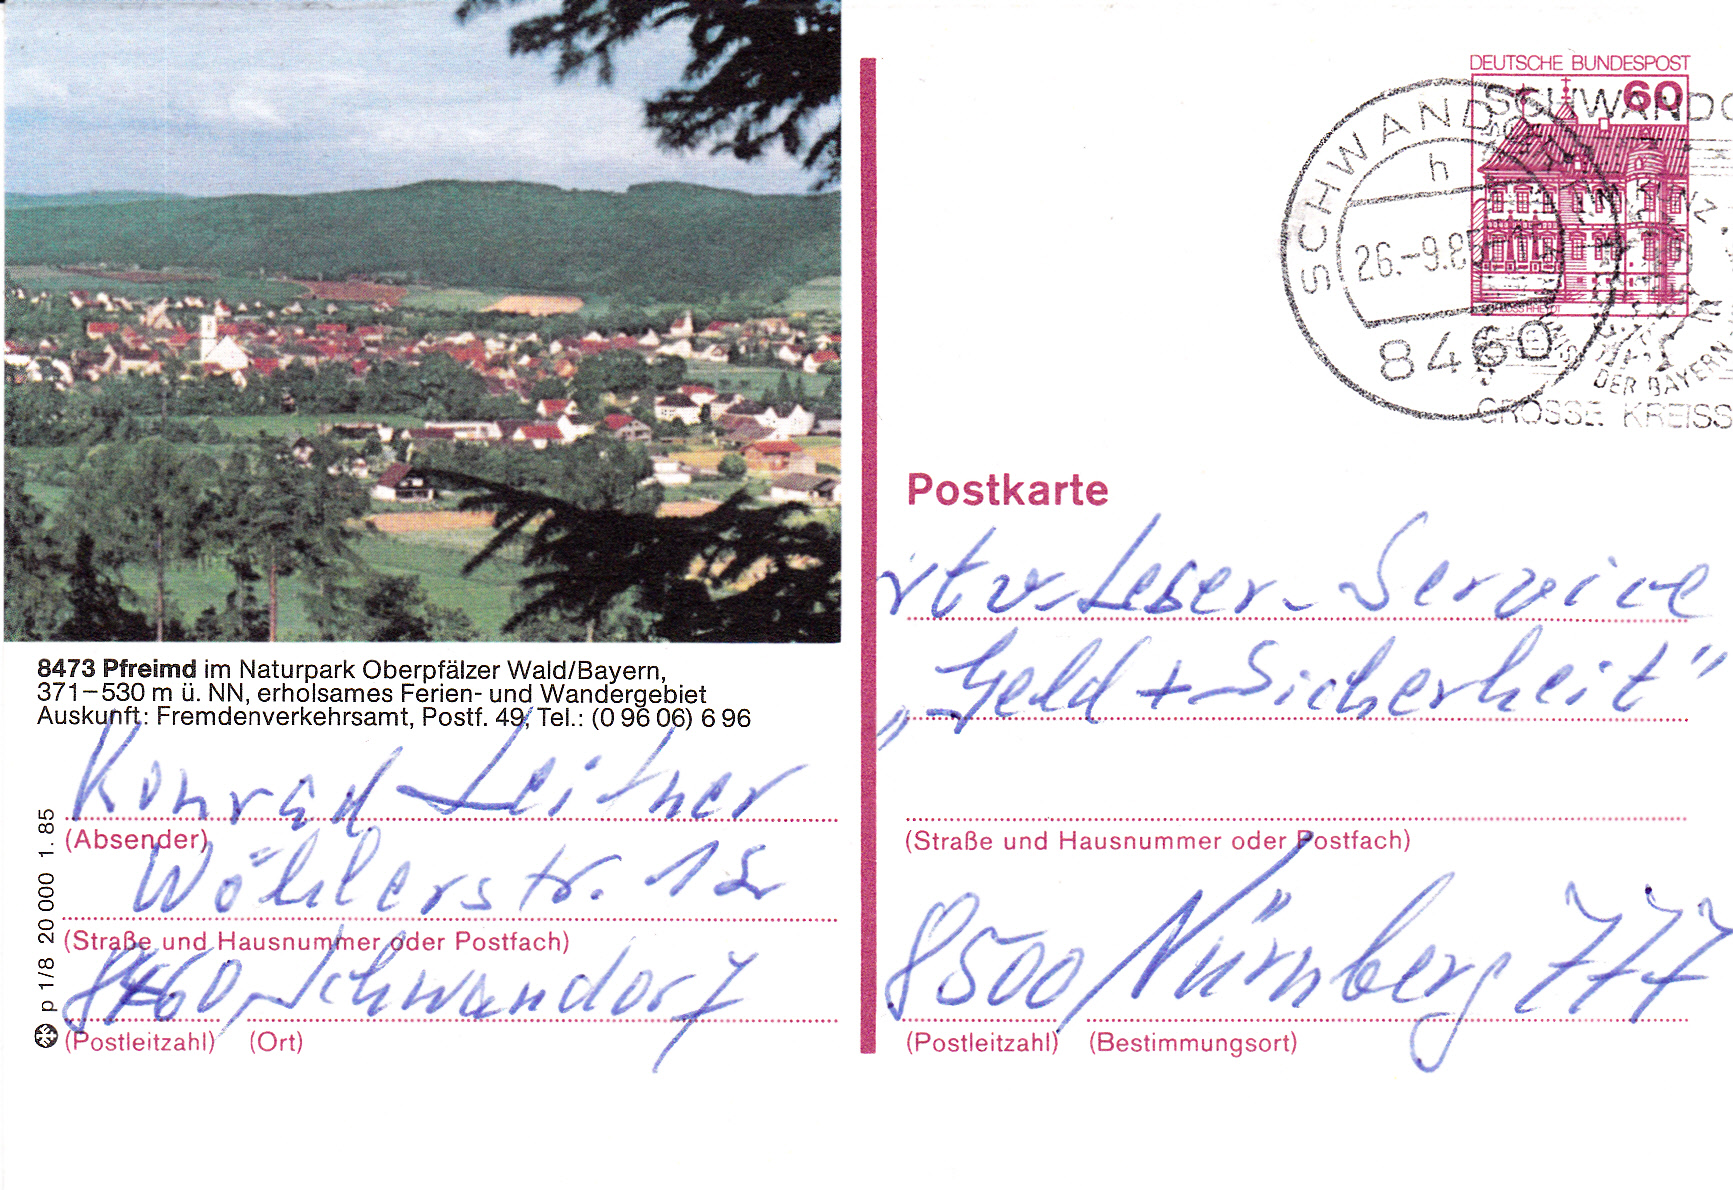 8473 Pfreimd im Naturpark Oberpfälzer Wald/Bayern,
371–530 m ü. NN, erholsames Ferien- und Wandergebiet
Auskunft: Fremdenverkehrsamt, Postf. 49, Tel.: (0 96 06) 6 96
Konrad Leitner
(Absender)
Wöhlerstr. 12
(Straße und Hausnummer oder Postfach)
8460 Schwandorf
(Postleitzahl) (Ort)
p 1/8 20 000 1. 85
DEUTSCHE BUNDESPOST
60
SCHWANDO
SCHWANDORF
h
26.-9.85
8460
DER BAYERN
GROSSE KREISS
Postkarte
rtv-Leser-Service
„Geld + Sicherheit"
(Straße und Hausnummer oder Postfach)
8500 Nürnberg 777
(Postleitzahl) (Bestimmungsort)